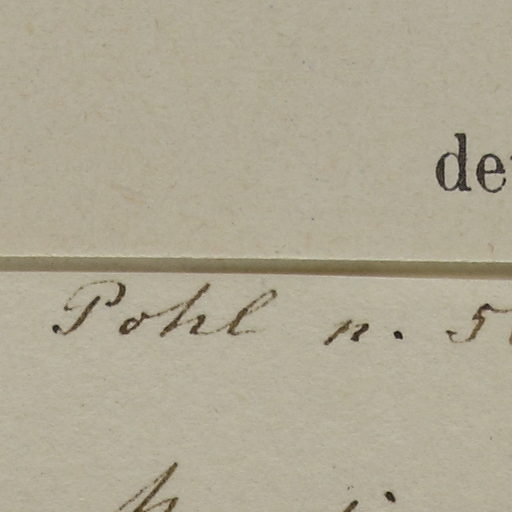 de
Pohl n. 5